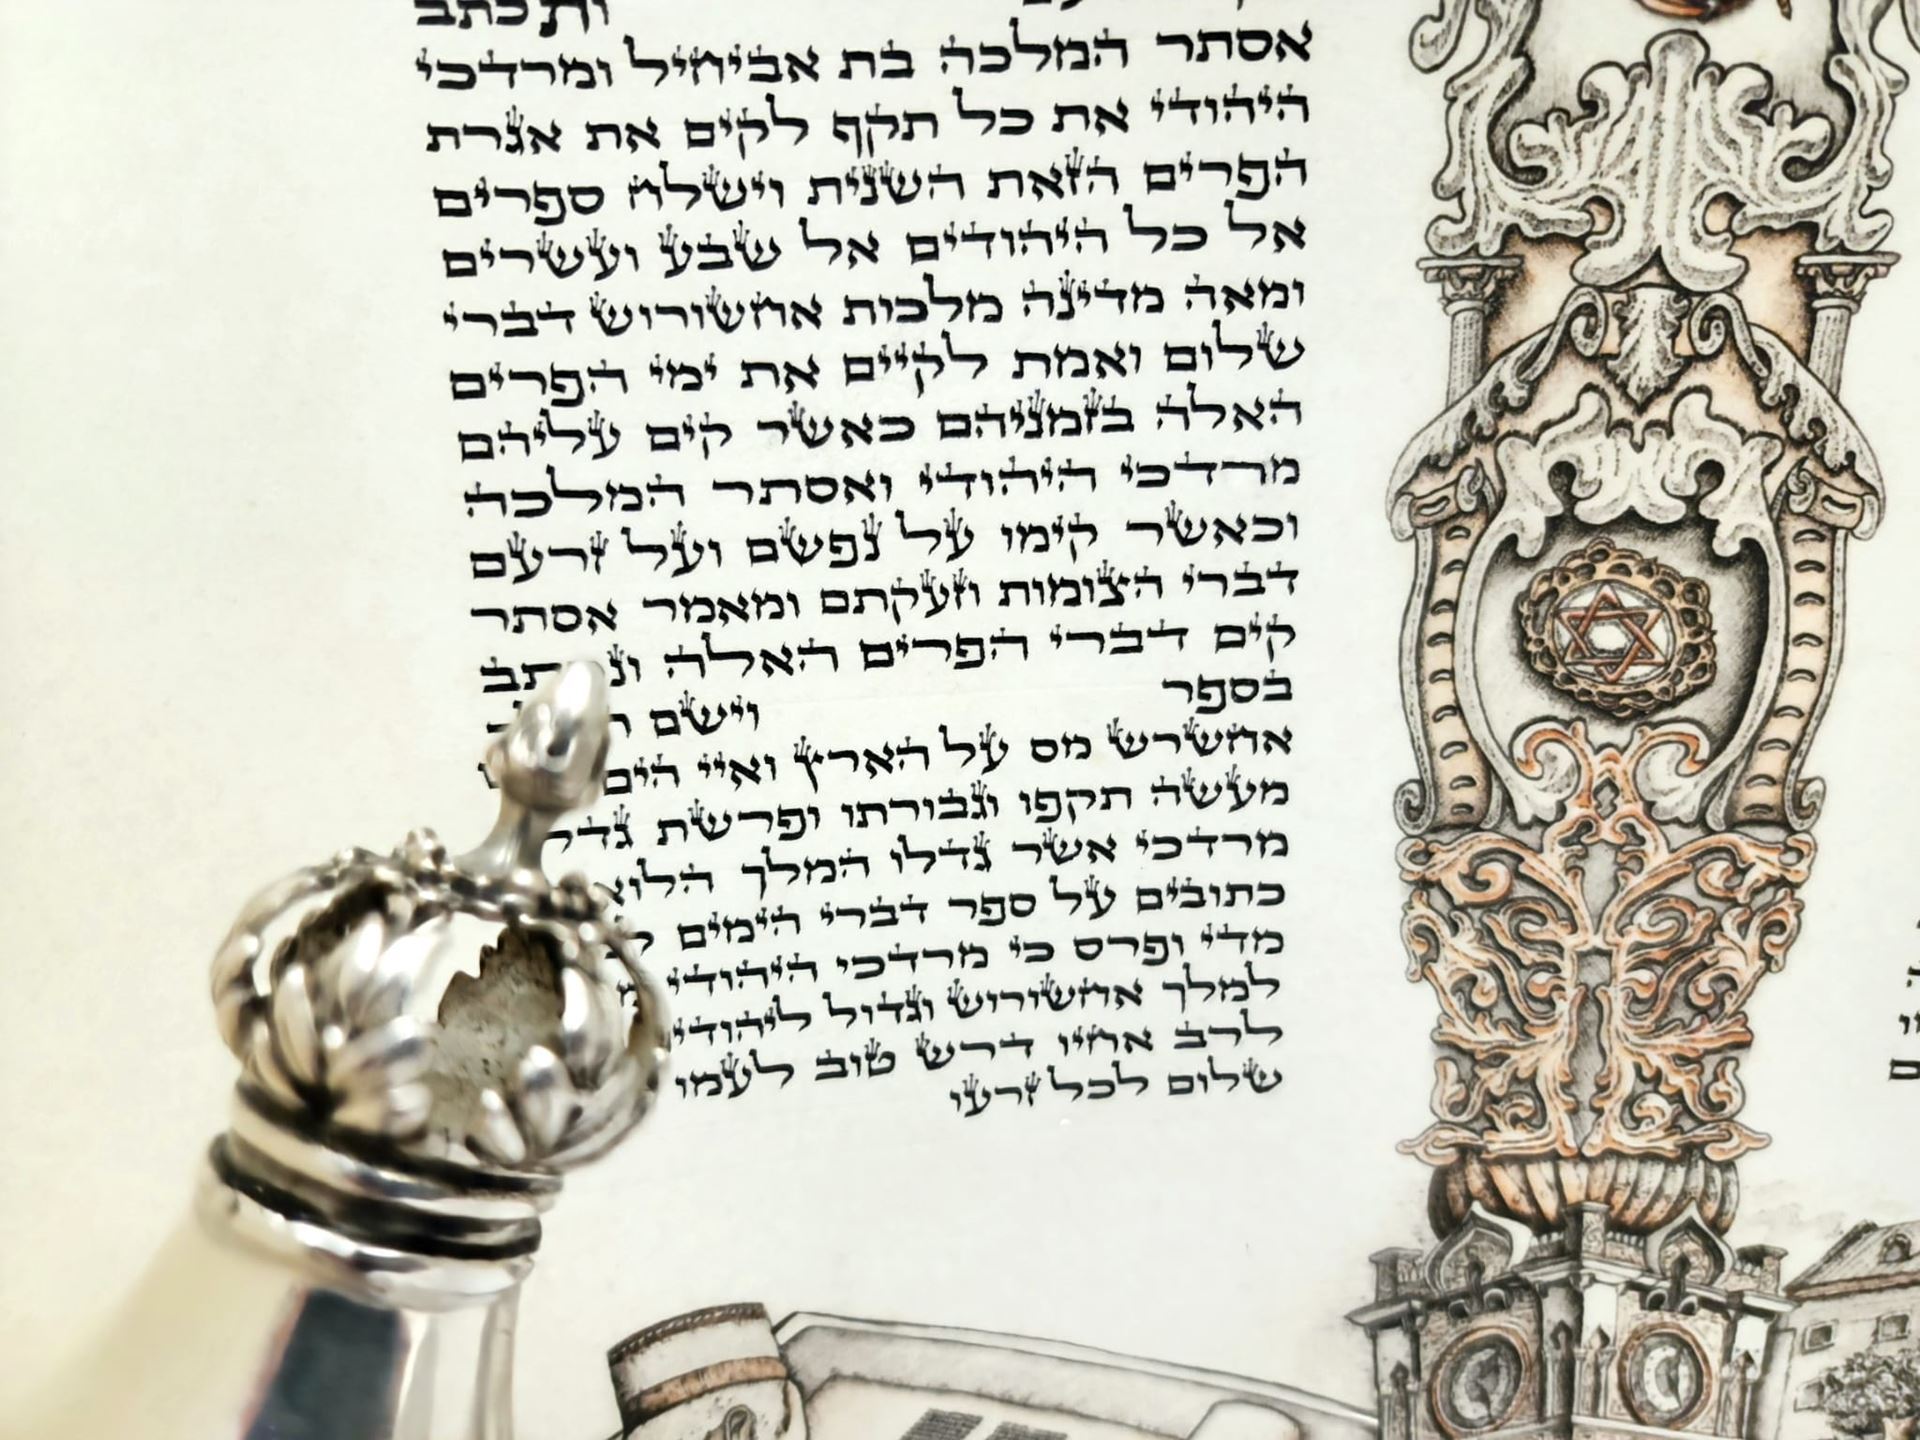 ותכתב
אסתר המלכה בת אביחיל ומרדכי
היהודי את כל תקף לקים את אגרת
הפרים הזאת השנית וישלח ספרים
אל כל היהודים אל שבע ועשרים
ומאה מדינה מלכות אחשורוש דברי
שלום ואמת לקיים את ימי הפרים
האלה בזמניהם כאשר קים עליהם
מרדכי היהודי ואסתר המלכה
וכאשר קימו על נפשם ועל זרעם
דברי הצומות וזעקתם ומאמר אסתר
קים דברי הפרים האלה
בספר וישם
אחשרש מס על הארץ ואיי הים
מעשה תקפו וגבורתו ופרשת
מרדכי אשר גדלו המלך
כתובים על ספר דברי הימים
מדי ופרס כי מרדכי היהודי
למלך אחשורוש וגדול
לרב אחיו דרש טוב לעמו
שלום לכל זרעו